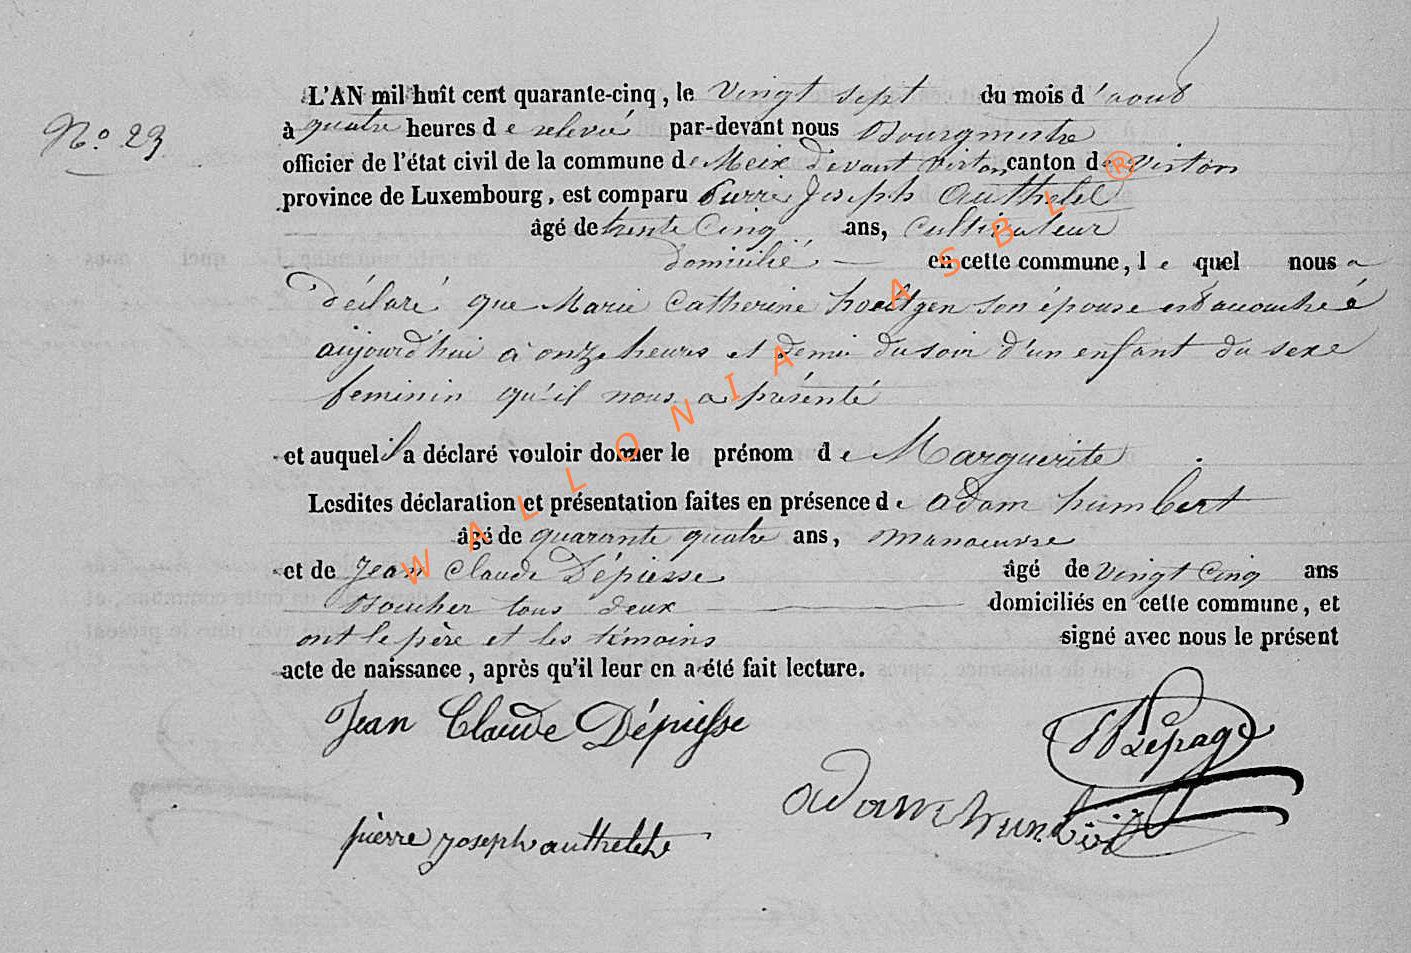 L'AN mil huit cent quarante-cinq, le vingt sept du mois d'aout
N.o 23 à quatre heures de relevé par-devant nous Bourgmestre
officier de l'état civil de la commune de Meix devant virton canton de virton
province de Luxembourg, est comparu pierre Joseph Authelet
âgé de trente Cinq ans, Cultivateur
domicilié en cette commune, le quel nous a
déclaré que Marie Catherine hoeltgen son épouse est accouchéé
aujourd'hui à onze heures et demie du soir d'un enfant du sexe
feminin qu'il nous a présenté
et auquel il a déclaré vouloir donner le prénom de Marguerite.
Lesdites déclaration et présentation faites en présence de adam humbert
âgé de quarante quatre ans, manoeuvre
et de Jean Claude Dépiesse âgé de vingt Cinq ans
Boucher tous deux domiciliés en cette commune, et
ont le père et les témoins signé avec nous le présent
acte de naissance, après qu'il leur en a été fait lecture.
Jean Claude Dépiesse
Lepage
adam humbert
pierre joseph authelet
WALLONIA ASBL ®